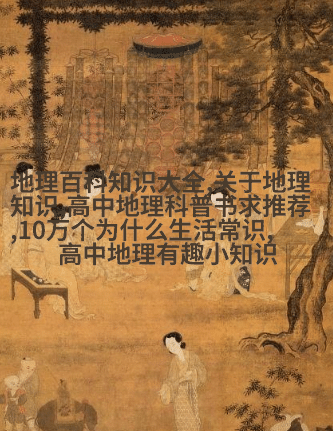 地理百科知识大全,关于地理
知识,高中地理科普书求推荐
,10万个为什么生活常识,
高中地理有趣小知识